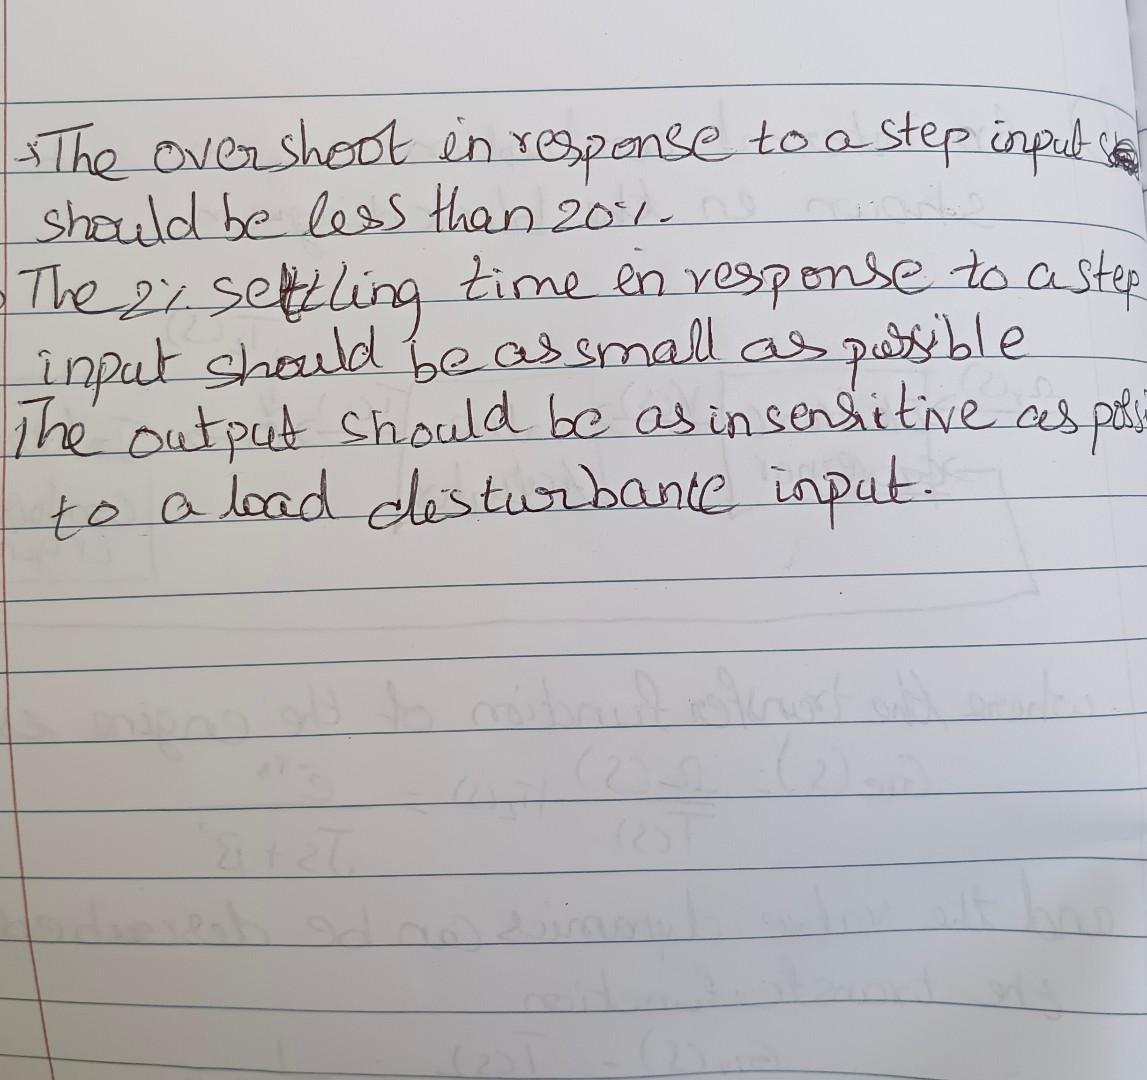 The overshoot in response to a step input
should be less than 20%.
The 2% settling time in response to a step
input should be as small as possible
The output should be as insensitive as poss
to a load disturbance input.